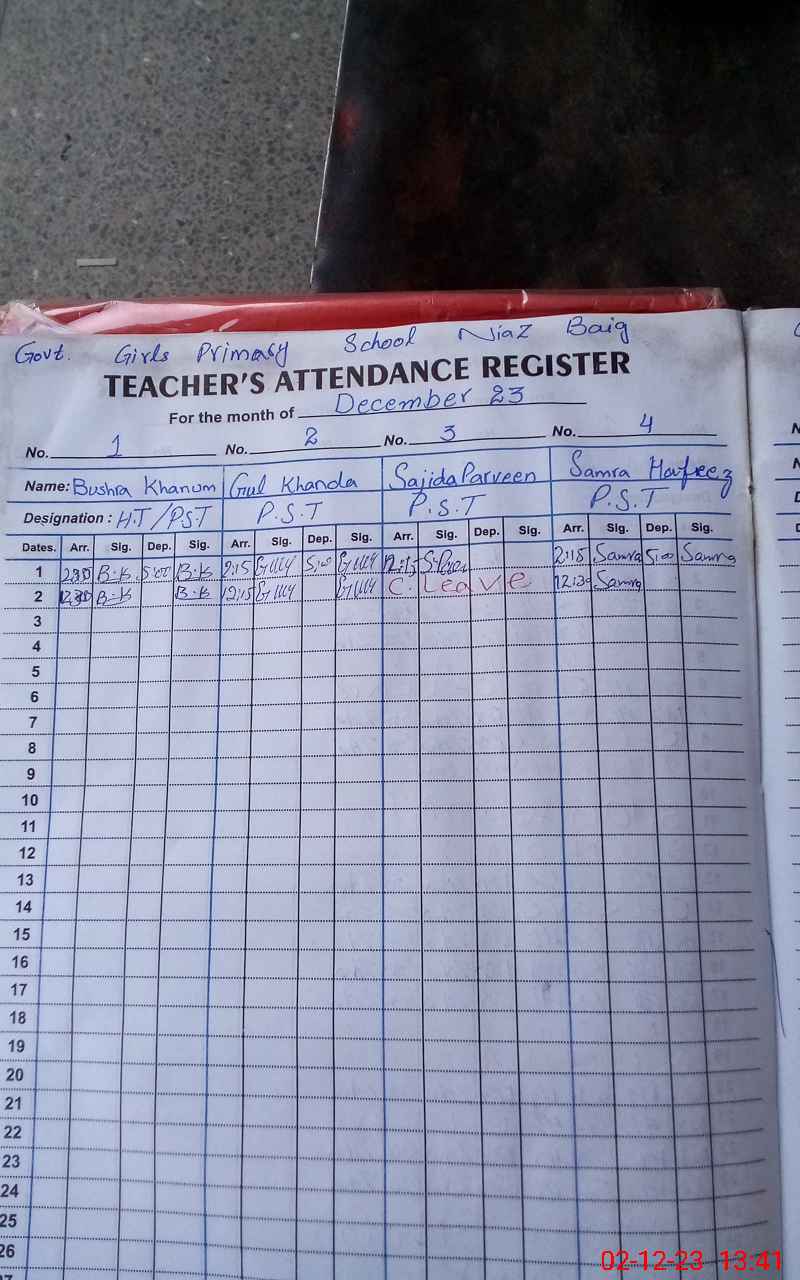 Govt. Girls Primary School Niaz Baig
TEACHER'S ATTENDANCE REGISTER
For the month of December 23
No. 1 No. 2 No. 3 No. 4
Name: Bushra Khanum Gul Khanda Sajida Parveen Samra Hafeez
Designation : H.T/P.S.T P.S.T P.S.T P.S.T
Dates. Arr. Sig. Dep. Sig. Arr. Sig. Dep. Sig. Arr. Sig. Dep. Sig. Arr. Sig. Dep. Sig.
1 B.K 5:00 B.K 2:15 5:00 12:15 2:15 Samra 5:00 Samra
2 12:30 B.K B.K 12:15 C. Leave 12:30 Samra
3
4
5
6
7
8
9
10
11
12
13
14
15
16
17
18
19
20
21
22
23
24
25
26
02-12-23 13:41